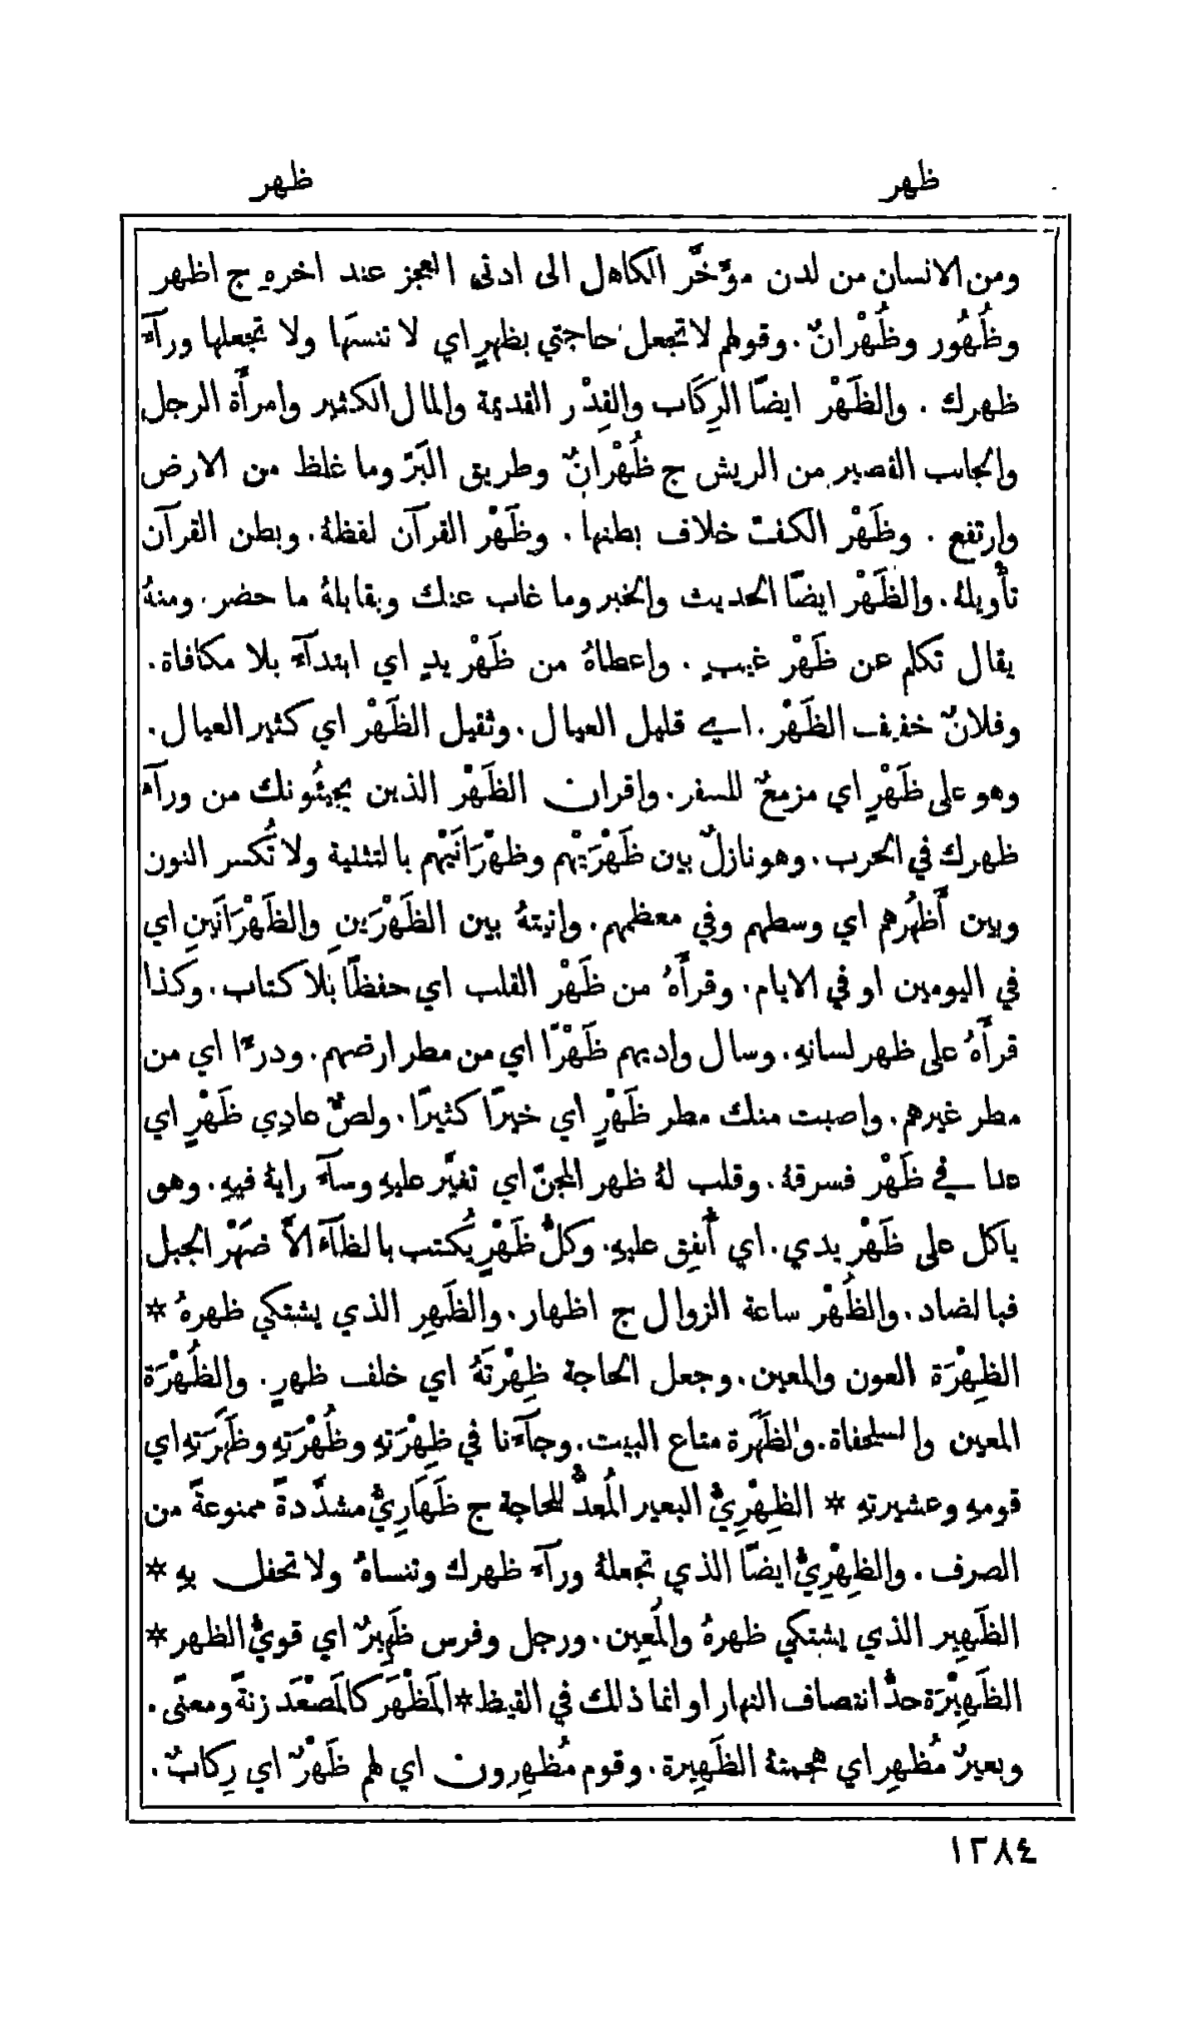 ظهر ظهر
ومن الانسان من لدن مؤخَّر الكاهل الى ادنى العجز عند اخرهِ ج اظهر
وظُهُور وظُهْرانٌ. وقولهم لا تجعل حاجتي بظهرٍ اي لا تنسَها ولا تجعلها ورآءَ
ظهرك. والظَهْر ايضًا الرِكَاب والقِدْر القديمة والمال الكثير وامرأَة الرجل
والجانب القصير من الريش ج ظُهْرانٌ وطريق البَرّ وما غلظ من الارض
وارتفع. وظَهْر الكفّ خلاف بطنها. وظَهْر القرآن لفظهُ. وبطن القرآن
تأْويلهُ. والظَهْر ايضًا الحديث والخبر وما غاب عنك ويقابلهُ ما حضر. ومنهُ
يقال تكلم عن ظَهْر غيبٍ. واعطاهُ من ظَهْر يدٍ اي ابتدآءً بلا مكافاة.
وفلانٌ خفيف الظَهْر. اي قليل العيال. وثقيل الظَهْر اي كثير العيال.
وهو على ظَهْرٍ اي مزمعٌ للسفر. واقران الظَهْر الذين يجيئُونك من ورآءِ
ظهرك في الحرب. وهو نازلٌ بين ظَهْرَيْهم وظَهْرَانَيْهم بالتثنية ولا تُكسر النون
وبين أَظهُرهم اي وسطهم وفي معظمهم. واتيتهُ بين الظَهْرَينِ والظَهْرَانَينِ اي
في اليومين او في الايام. وقرأَهُ من ظَهْر القلب اي حفظًا بلا كتاب. وكذا
قرأَهُ على ظهر لسانهِ. وسال واديهم ظَهْرًا اي من مطر ارضهم. ودرءًا اي من
مطر غيرهم. واصبت منك مطر ظَهْرٍ اي خيرًا كثيرًا. ولصٌّ عادِي ظَهْرٍ اي
عدا في ظَهْر فسرقهُ. وقلب لهُ ظهر المجنّ اي تغيَّر عليهِ وسآءَ رايهُ فيهِ. وهو
ياكل على ظَهْرِ يدي. اي أُنفِق عليهِ. وكلُّ ظَهْرٍ يُكتب بالظآءِ الاَّ ضَهْر الجبل
فبالضاد. والظُهْر ساعة الزوال ج اظهار. والظَهِر الذي يشتكي ظهرهُ *
الظِهْرَة العون والمعين. وجعل الحاجة ظِهْرَتَهُ اي خلف ظهرٍ. والظُهْرَة
المعين والسلحفاة. والظَهَرة متاع البيت. وجآءَنا في ظِهْرَتهِ وظُهْرَتهِ وظَهَرَتهِ اي
قومهِ وعشيرتهِ * الظِهْرِيُّ البعير المُعدُّ للحاجة ج ظَهَارِيُّ مشدَّدةً ممنوعةً من
الصرف. والظِهْرِيُّ ايضًا الذي تجعلهُ ورآءَ ظهرك وتنساهُ ولا تحفل بهِ *
الظَهِير الذي يشتكي ظهرهُ والمُعِين. ورجل وفرس ظَهِيرٌ اي قويُّ الظهر *
الظَهِيْرَة حدُّ انتصاف النهار او انما ذلك في القيظ * المَظْهَر كالمَصْعَد زنةً ومعنًى.
وبعيرٌ مُظهِر اي هجمتهُ الظَهِيرة. وقوم مُظهِرون اي لهم ظَهْرٌ اي رِكابٌ.
١٣٨٤